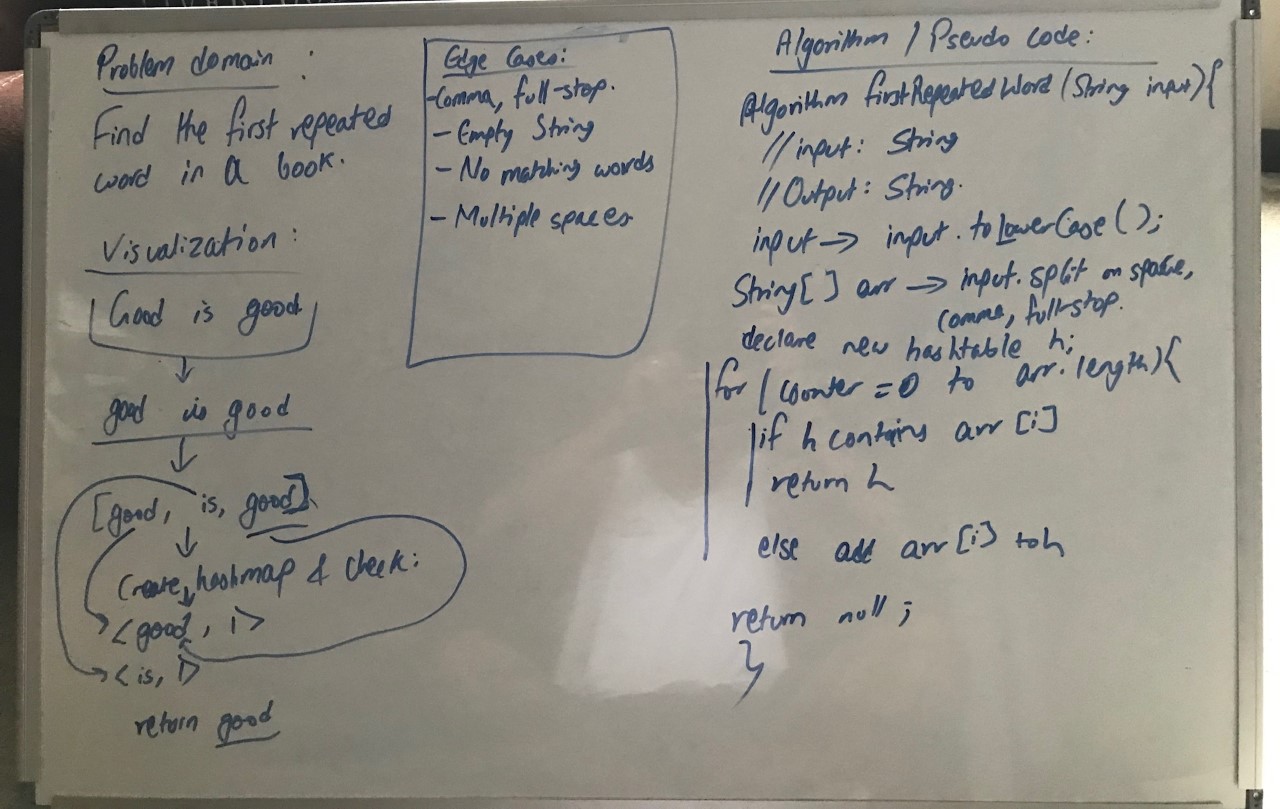 Problem domain :
Find the first repeated
word in a book.
Visualization :
Good is good
good is good
[good, is, good]
Create hashmap & check:
<good, 1>
<is, 1>
return good
Edge Cases:
-Comma, full-stop.
- Empty String
- No matching words
- Multiple spaces
Algorithm / Pseudo code:
Algorithm firstRepeatedWord (String input){
// input: String
// Output: String.
input → input.toLowerCase();
String[] arr → input.split on space,
comma, full-stop.
declare new hashtable h;
for (counter = 0 to arr.length){
if h contains arr [i]
return h
else add arr [i] to h
return null ;
}